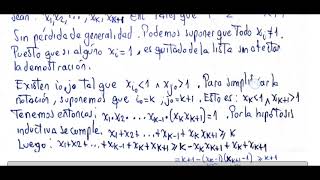 Sean: x₁x₂, ... x_k x_{k+1}
Sin pérdida de generalidad. Podemos suponer que Todo x_i ≠ 1.
Puesto que si alguno x_i = 1, es quitado de la lista sin afectar
la demostración.
Existen i₀, j₀ tal que x_{i₀} < 1 ∧ x_{j₀} > 1. Para simplificar la
notación, suponemos que i₀ = k, j₀ = k+1. Esto es: x_k < 1 ∧ x_{k+1} > 1
Tenemos entonces: x₁·x₂· ... x_{k-1}·(x_k x_{k+1}) = 1. Por la hipótesis
inductiva se cumple. x₁+x₂+ ... +x_{k-1}+x_k x_{k+1} ≥ k
Luego: x₁+x₂+ ... +x_{k-1}+x_k+x_{k+1} ≥ k - x_k x_{k+1} + x_k + x_{k+1}
= k+1 - (x_k-1)(x_{k+1}-1) ≥ k+1